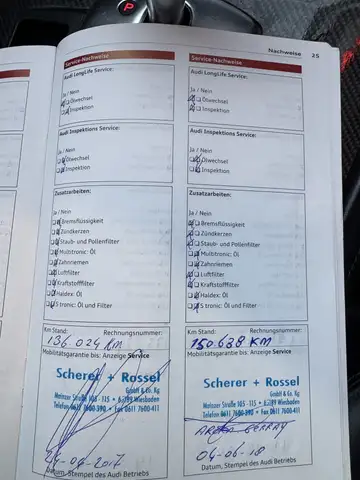 P
Nachweise 25
Service-Nachweise
Audi LongLife Service:
Ja / Nein
Ölwechsel
Inspektion
Audi Inspektions Service:
Ja / Nein
Ölwechsel
Inspektion
Zusatzarbeiten:
Ja / Nein
Bremsflüssigkeit
Zündkerzen
Staub- und Pollenfilter
Multitronic: Öl
Zahnriemen
Luftfilter
Kraftstofffilter
Haldex: Öl
S tronic: Öl und Filter
Km Stand: Rechnungsnummer:
136 024 KM
Mobilitätsgarantie bis: Anzeige Service
Scherer + Rossel
GmbH & Co. Kg
Mainzer Straße 105 - 115 • 65189 Wiesbaden
Telefon 0611 7600-390 • Fax 0611 7600-411
24-04-2017
Datum, Stempel des Audi Betriebs
Service-Nachweise
Audi LongLife Service:
Ja / Nein
Ölwechsel
Inspektion
Audi Inspektions Service:
Ja / Nein
Ölwechsel
Inspektion
Zusatzarbeiten:
Ja / Nein
Bremsflüssigkeit
Zündkerzen
Staub- und Pollenfilter
Multitronic: Öl
Zahnriemen
Luftfilter
Kraftstofffilter
Haldex: Öl
S tronic: Öl und Filter
Km Stand: Rechnungsnummer:
150.638 KM
Mobilitätsgarantie bis: Anzeige Service
Scherer + Rossel
GmbH & Co. Kg
Mainzer Straße 105 - 115 • 65189 Wiesbaden
Telefon 0611 7600-390 • Fax 0611 7600-411
04-06-18
Datum, Stempel des Audi Betriebs